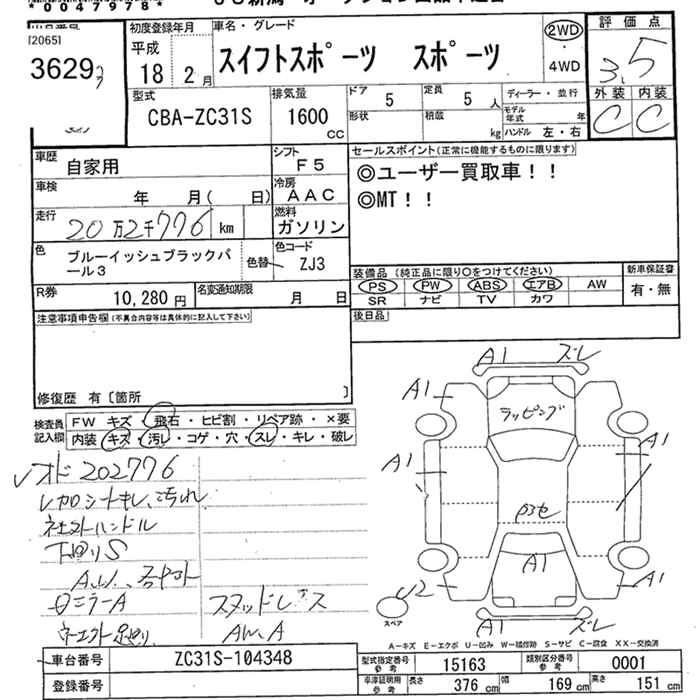 *0047978*
初度登録年月
車名・グレード
評価点
[2065]
3629
平成
18 2月
スイフトスポーツ スポーツ
2WD
4WD
3.5
外装 内装
C C
型式
CBA-ZC31S
排気量
1600 cc
ドア
5
定員
5 人
形状
積載
kg
ディーラー・並行
モデル年式 年
ハンドル 左・右
車歴
自家用
シフト
F5
セールスポイント(正常に機能するものに限ります)
◎ユーザー買取車!!
◎MT!!
車検
年 月( 日)
冷房
AAC
走行
20万2千776 km
燃料
ガソリン
色
ブルーイッシュブラックパール3
色替
色コード
ZJ3
装備品 (純正品に限り○をつけてください)
新車保証書
PS PW ABS エアB AW
SR ナビ TV カワ
有・無
R券
10,280 円
名変通知期限
月 日
後日品
注意事項申告欄(不具合内容等は具体的に記入して下さい)
修復歴 有〔箇所 〕
検査員記入欄
FW キズ・飛石・ヒビ割・リペア跡・×要
内装・キズ・汚レ・コゲ・穴・スレ・キレ・破レ
レオド 202776
レカロシートキレ、汚れ
社外ハンドル
下回りS
ミラーA
スタッドレス
AW.A
A1 ズレ
A1
ラッピング
A1
A1
A1
U2
A1
A1 ズレ
スペア
A-キズ E-エクボ U-凹み W-補修跡 S-サビ C-腐食 XX-交換済
車台番号
ZC31S-104348
型式指定番号 参考
15163
類別区分番号 参考
0001
登録番号
車庫証明用 参考
長さ 376 cm
幅 169 cm
高さ 151 cm